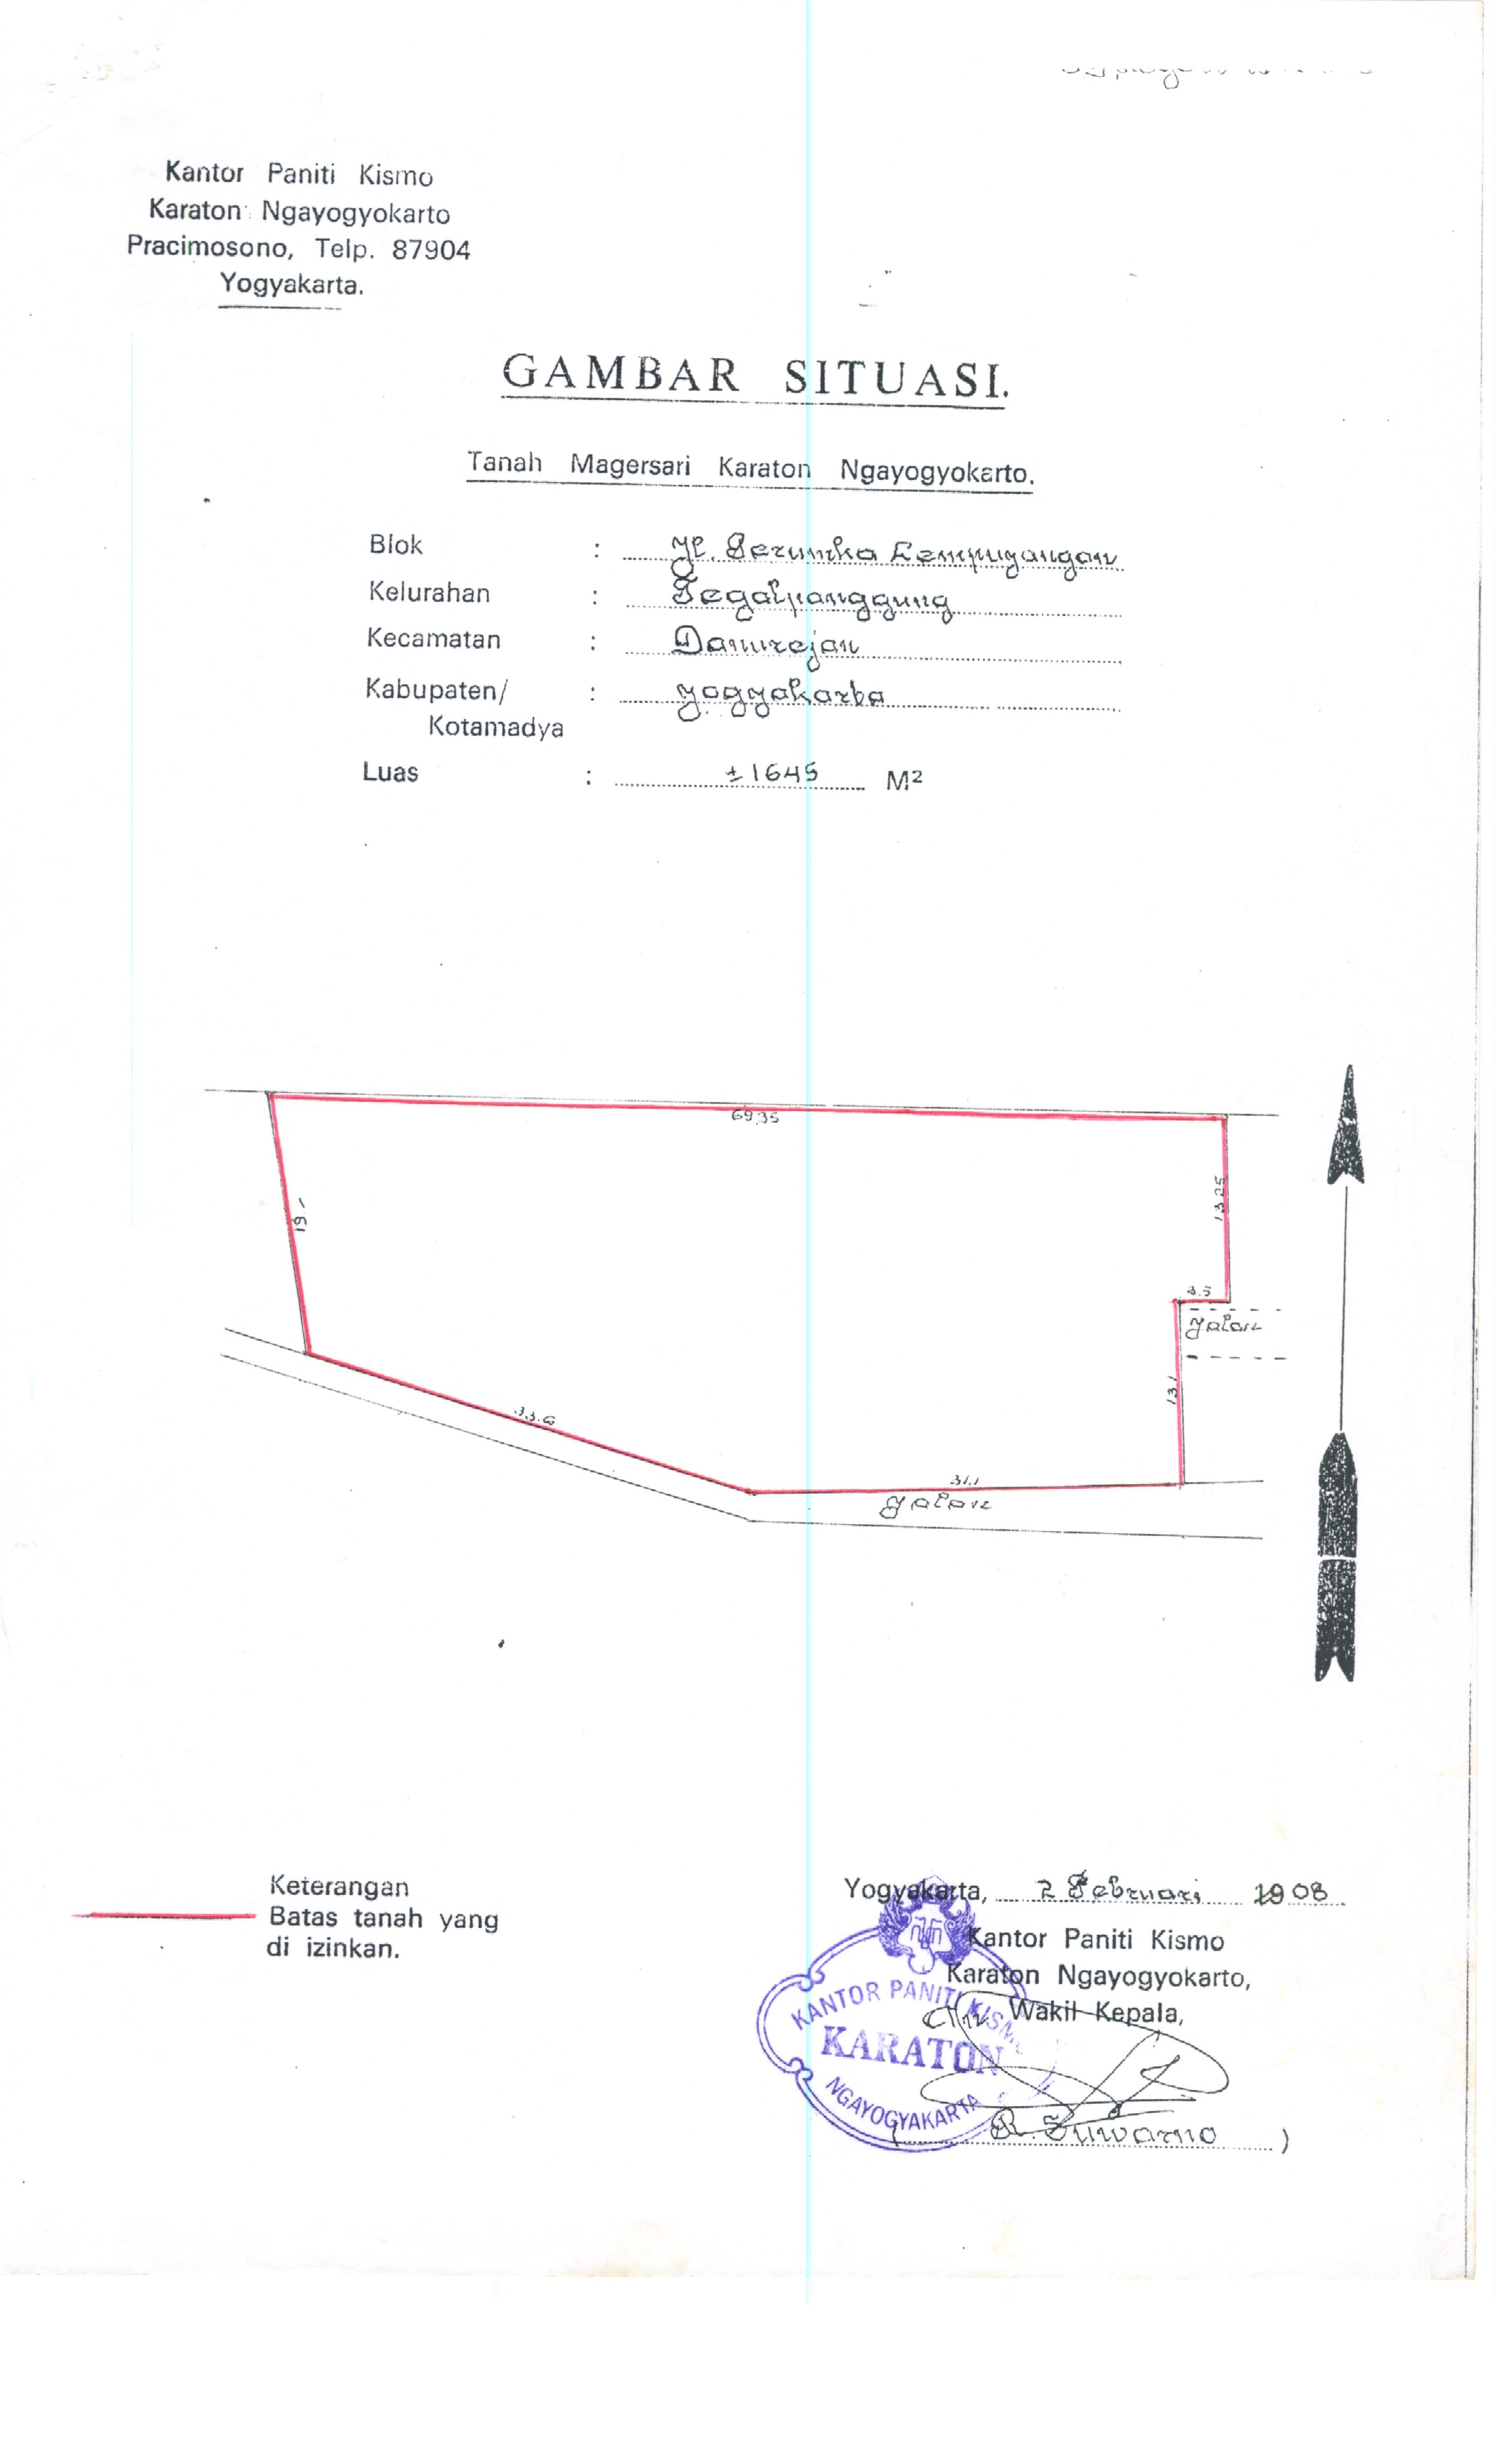 Kantor Paniti Kismo
Karaton Ngayogyokarto
Pracimosono, Telp. 87904
Yogyakarta.
GAMBAR SITUASI.
Tanah Magersari Karaton Ngayogyokarto.
Blok : Jl. Lempuyangan
Kelurahan : Tegalpanggung
Kecamatan : Danurejan
Kabupaten/ : Yogyakarta
Kotamadya
Luas : ±1645 M²
69,35
19.-
13,25
3.5
Jalan
13,1
33.6
31,1
Jalan
Keterangan
Batas tanah yang
di izinkan.
Yogyakarta, 2 Februari
Kantor Paniti Kismo
Karaton Ngayogyokarto,
Wakil Kepala,
KANTOR PANITI KISMO
KARATON
NGAYOGYAKARTA
( R. Suwarno )